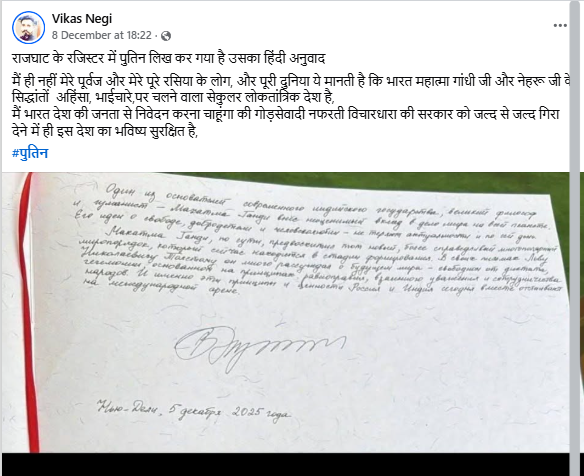 Vikas Negi
8 December at 18:22 ·
राजघाट के रजिस्टर में पुतिन लिख कर गया है उसका हिंदी अनुवाद
मैं ही नहीं मेरे पूर्वज और मेरे पूरे रसिया के लोग, और पूरी दुनिया ये मानती है कि भारत महात्मा गांधी जी और नेहरू जी के
सिद्धांतों अहिंसा, भाईचारे,पर चलने वाला सेकुलर लोकतांत्रिक देश है,
मैं भारत देश की जनता से निवेदन करना चाहूंगा की गोड़सेवादी नफरती विचारधारा की सरकार को जल्द से जल्द गिरा
देने में ही इस देश का भविष्य सुरक्षित है,
#पुतिन
Один из основателей современного индийского государства, великий философ
и гуманист – Махатма Ганди внес неоценимый вклад в дело мира на всей планете.
Его идеи о свободе, добродетели и человеколюбии – не теряют актуальности и по сей день.
Махатма Ганди, по сути, предвосхитил тот новый, более справедливый многополярный
миропорядок, который сейчас находится в стадии формирования. В своих письмах Льву
Николаевичу Толстому он много рассуждал о будущем мира – свободном от диктата,
гегемонии и основанном на принципах равноправия, взаимного уважения и сотрудничества
народов. И именно эти принципы и ценности Россия и Индия сегодня вместе отстаивают
на международной арене.
Нью-Дели, 5 декабря 2025 года